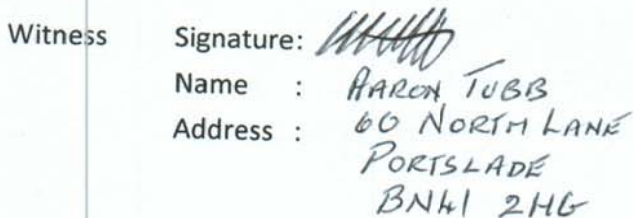 Witness Signature:
Name : AARON TUBB
Address : 60 NORTH LANE
PORTSLADE
BN41 2HG